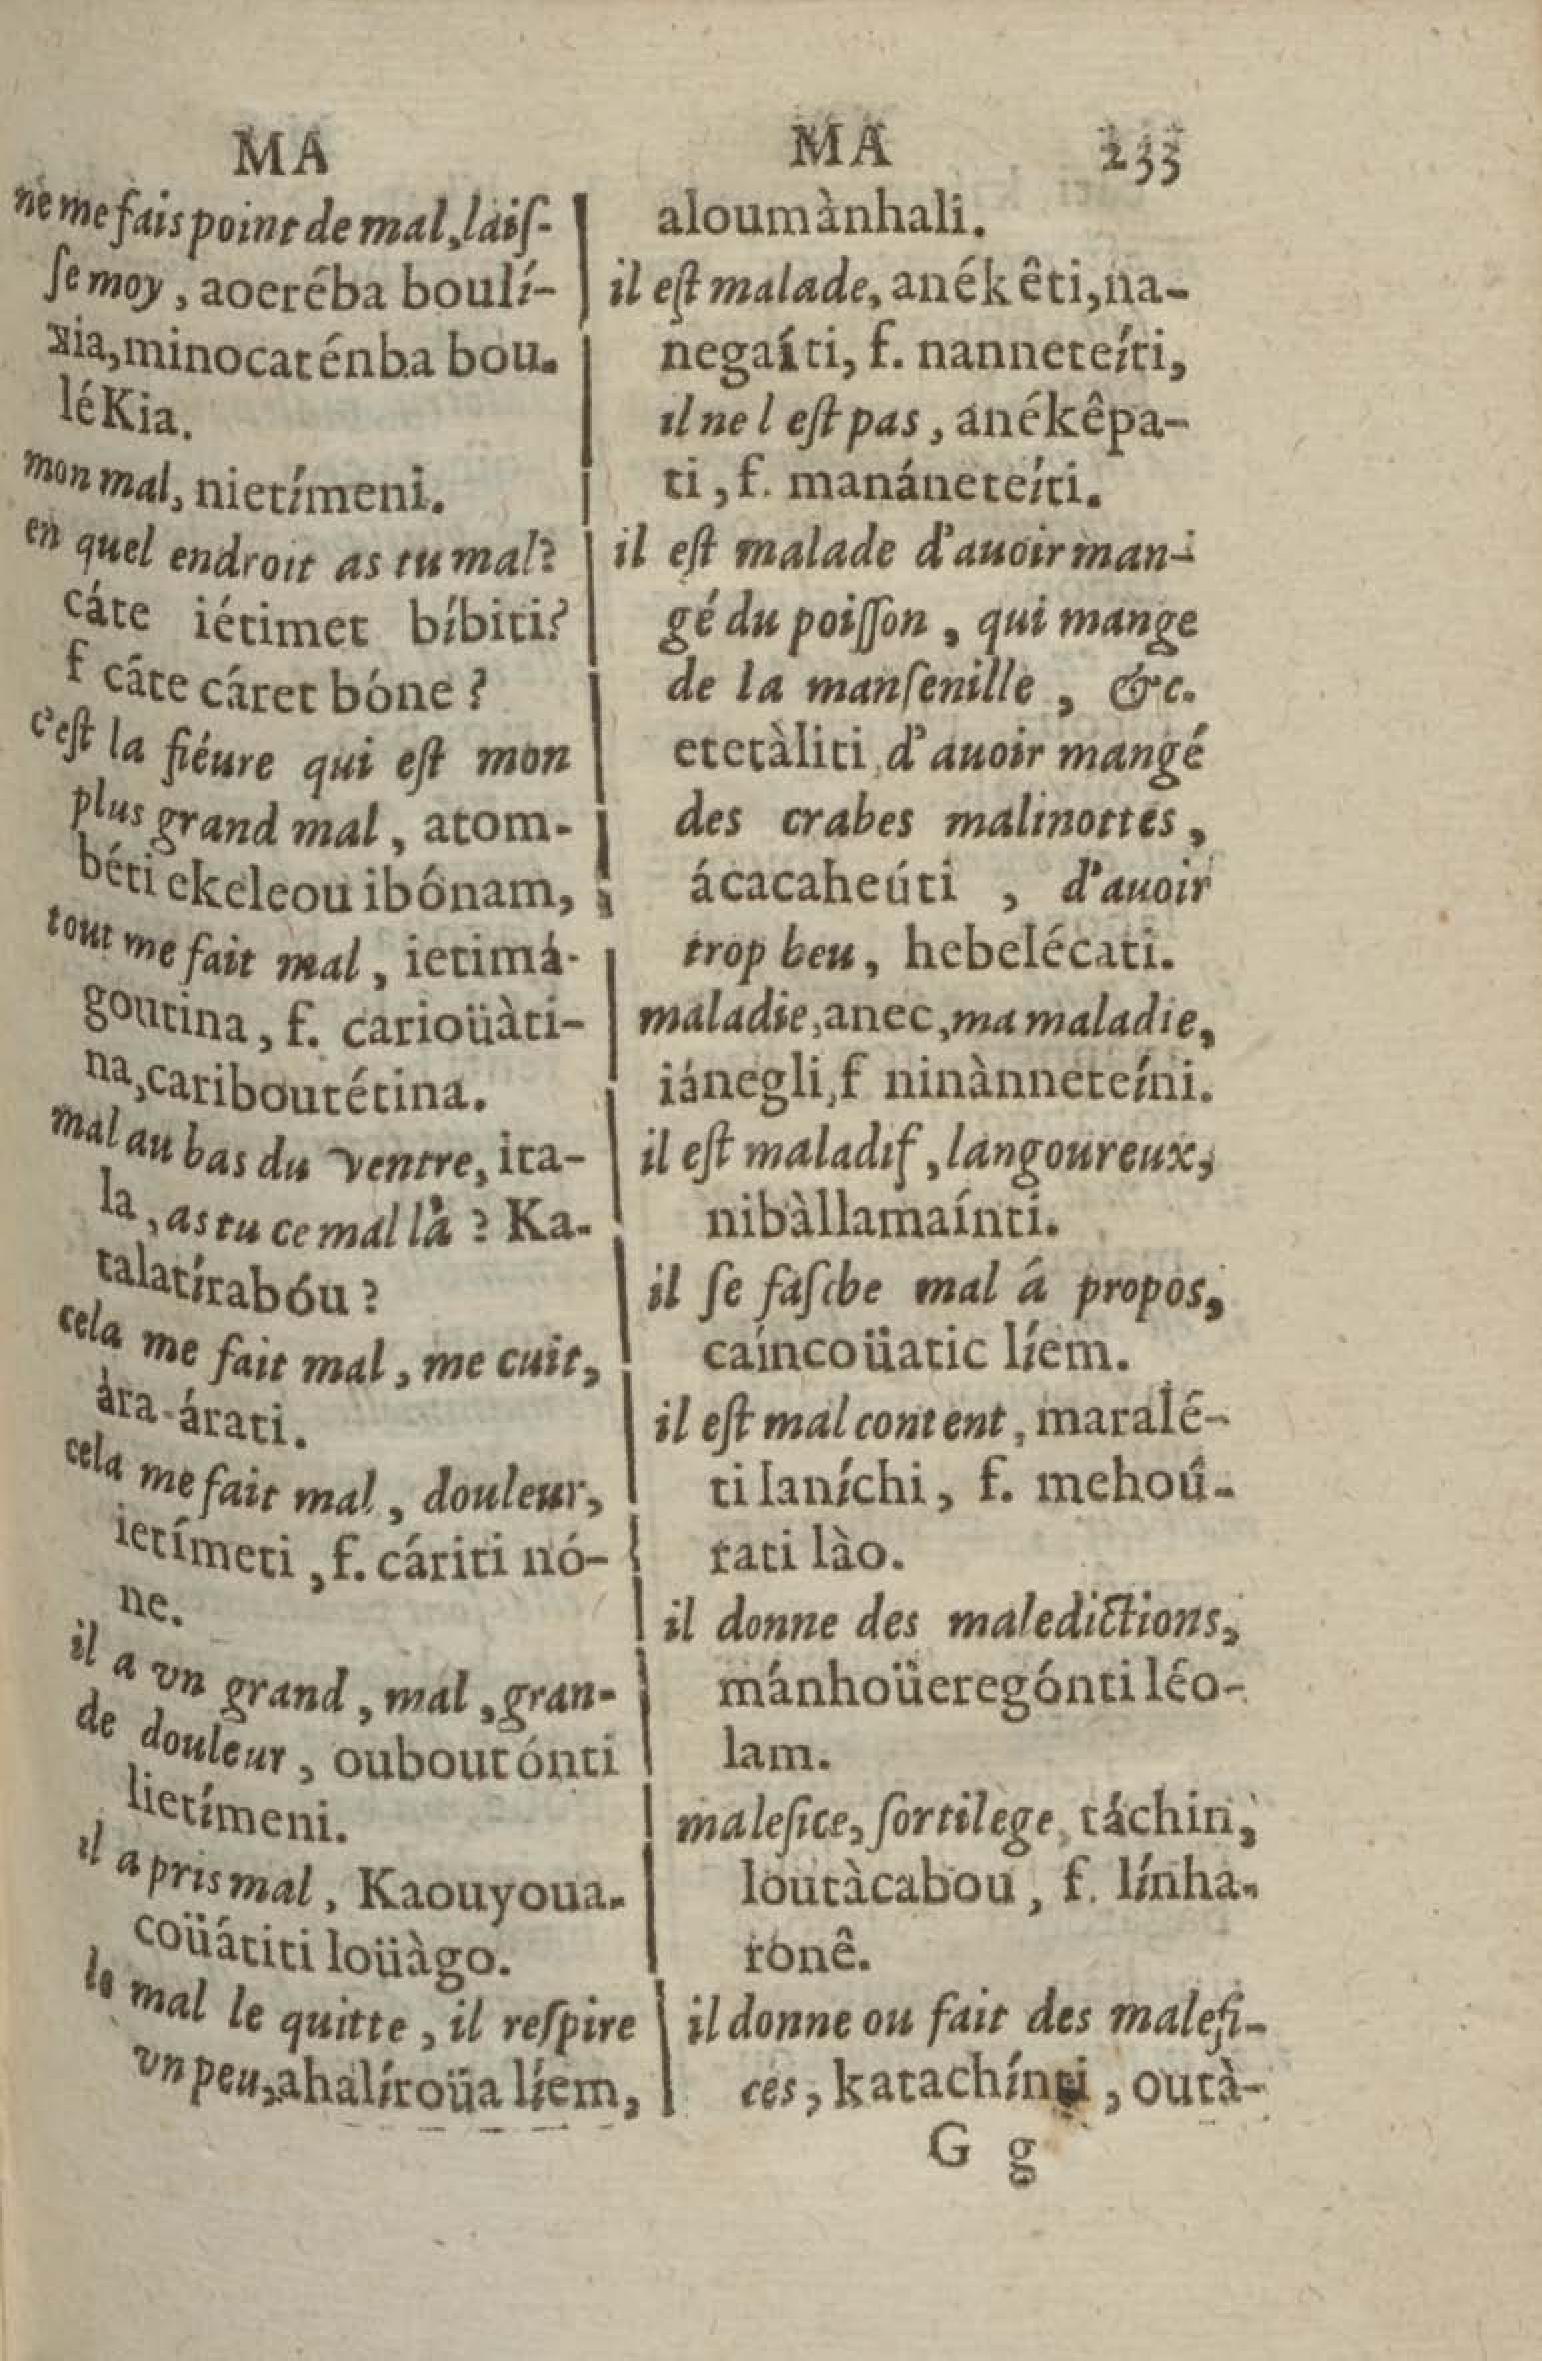 MA
ne me fais point de mal, laiſ-
ſe moy, aoeréba boulí-
Kia, minocaténba bou-
léKia.
mon mal, nietímeni.
en quel endroit as tu mal?
cáte iétimet bíbiti?
f cáte cáret bóne?
c'eſt la fiéure qui eſt mon
plus grand mal, atom-
béti ekeleou ibónam,
tout me fait mal, ietimá-
goutina, f. carioüàti-
na, cariboutétina.
mal au bas du ventre, ita-
la, as tu ce mal là? Ka-
talatírabóu?
cela me fait mal, me cuit,
àra-árati.
cela me fait mal, douleur,
ietímeti, f. cáriti nó-
ne.
il a vn grand, mal, gran-
de douleur, ouboutónti
lietímeni.
il a pris mal, Kaouyoua-
coüátiti loüàgo.
le mal le quitte, il reſpire
vn peu, ahalíroüa líem,
MA 233
aloumànhali.
il eſt malade, anékêti, na-
negaíti, f. nanneteíti,
il ne l eſt pas, anékêpa-
ti, f. manáneteíti.
il eſt malade d'auoir man-
gé du poiſſon, qui mange
de la manſenille, &c.
etetàliti, d'auoir mangé
des crabes malinottes,
ácacaheúti, d'auoir
trop beu, hebelécati.
maladie, anec, ma maladie,
iánegli, f ninànneteíni.
il eſt maladif, langoureux,
nibàllamaínti.
il ſe faſche mal á propos,
caíncoüatic líem.
il eſt mal content, maralé-
ti laníchi, f. mehoú-
tati lào.
il donne des maledictions,
mánhoüeregónti léo-
lam.
maleſice, ſortilège, táchin,
loutàcabou, f. línha-
ronê.
il donne ou fait des malefi-
ces, katachínti, outà-
G g